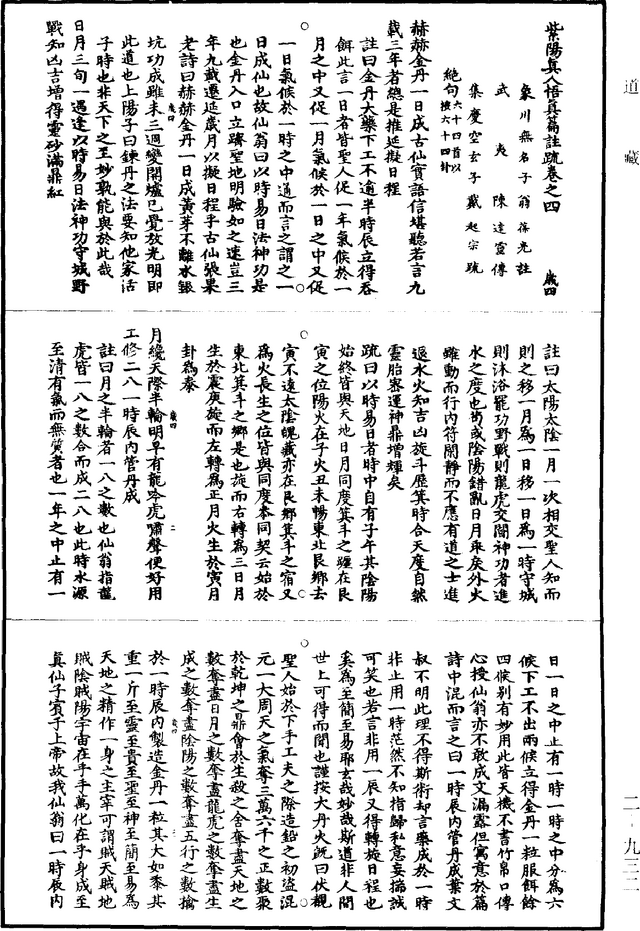 道藏
紫陽真人悟真篇註疏卷之四 歲四
象川無名子翁葆光註
武夷陳達靈傳
集慶空玄子戴起宗疏
絕句六十四首以按六十四卦
赫赫金丹一日成古仙實語信堪聽若言九
載三年者總是推延擬日程
註曰金丹大藥下工不逾半時辰立得吞
餌此言一日者皆聖人促一年氣候於一
月之中又促一月氣候於一日之中又促
一日氣候於一時之中通而言之謂之一
日成仙也故仙翁曰以時易日法神功是
也金丹入口立躋聖地明驗如之速豈三
年九載遷延歲月以擬日程乎古仙張果
老詩曰赫赫金丹一日成黃芽不離水銀
歲四
坑功成雖未三週變開爐已覺放光明即
此道也上陽子曰鍊丹之法要知他家活
子時也非天下之至妙孰能與於此哉
日月三旬一遇逢以時易日法神功守城野
戰知凶吉增得靈砂滿鼎紅
註曰太陽太陰一月一次相交聖人知而
則之移一月為一日移一日為一時守城
則沐浴罷功野戰則龍虎交閤神功者進
水之度也苟或陰陽錯亂日月乖戾外火
雖動而行內符閤靜而不應有道之士進
退水火知吉凶旋斗歷箕時合天度自然
靈胎密運神鼎增輝矣
疏曰以時易日者時中自有子午其陰陽
始終皆與天地日月同度箕斗之躔在艮
寅之位陽火在子火丑未暢東北艮鄉去
寅不遠太陰魄藏亦在艮鄉箕斗之宿又
為火長生之位皆與同度參同契云始於
東北箕斗之鄉是也旋而右轉為三日月
生於震庚旋而左轉為正月火生於寅月
卦為泰
歲四 二
月纔天際半輪明早有龍吟虎嘯聲便好用
工修二八一時辰內管丹成
註曰月之半輪者一八之數也仙翁指龍
虎皆一八之數合而成二八也此時水源
至清有氣而無質者也一年之中止有一
日一日之中止有一時一時之中分為六
候下工不出兩候立得金丹一粒服餌餘
四候別有妙用此皆天機不書竹帛口傳
心授仙翁亦不敢成文漏露但寓意於篇
詩中混而言之曰一時辰內管丹成葉文
叔不明此理不得斯術却言藥成於一時
非止用一時茫然不知指歸私意妄揣誠
可笑也若言非用一辰又得轉施日程也
奚為至簡至易耶玄哉妙哉斯道非人間
世上可得而聞也謹按大丹火訣曰伏觀
聖人始於下手工夫之際造鉛之初盜混
元一大周天之氣奪三萬六千之正數聚
於乾坤之鼎會於生殺之舍奪盡天地之
數奪盡日月之數奪盡龍虎之數奪盡生
成之數奪盡陰陽之數奪盡五行之數擒
歲四
於一時辰內製造金丹一粒其大如黍其
重一斤至靈至貴至聖至神至簡至易為
天地之精作一身之主宰可謂賊天賊地
賊陰賊陽宇宙在乎手萬化在乎身成至
真仙子賓于上帝故我仙翁曰一時辰內
二·九三二